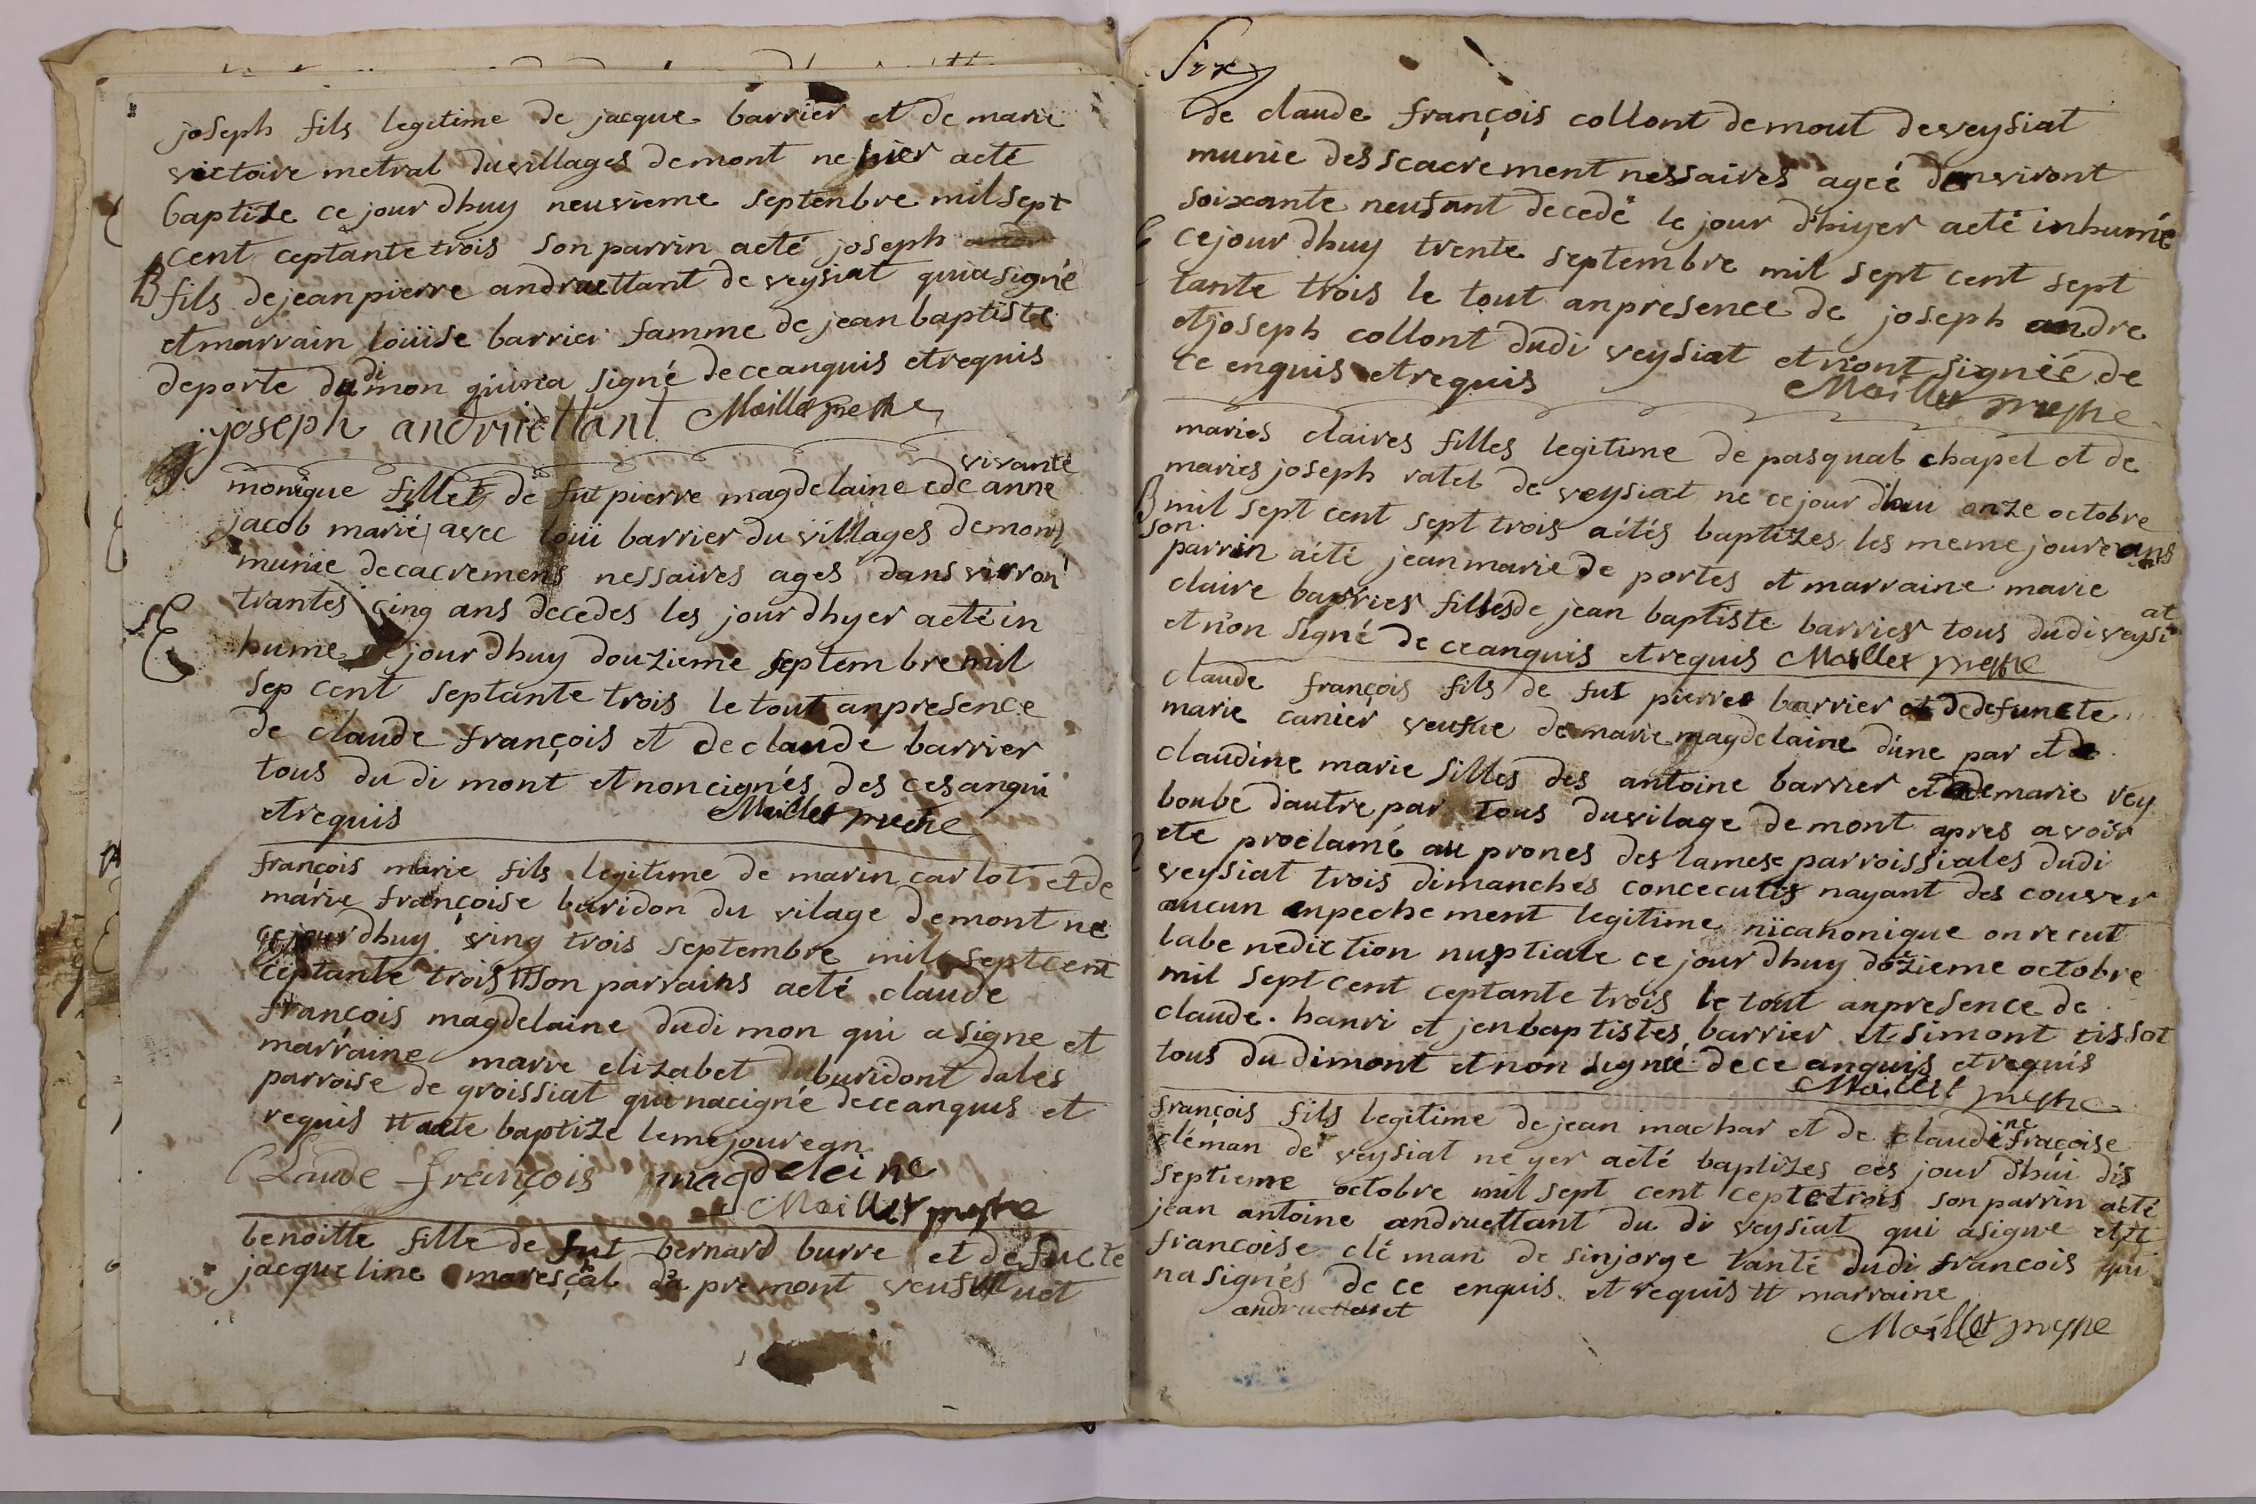 joseph fils legitime de jacque barrier et de marie
victoire metral du villages de mont ne hier acté
baptize ce jour dhuy neuvieme septenbre mil sept
cent ceptante trois son parrin acté joseph
B fils de jean pierre andruettant de veysiat qui a signé
et marrain loüise barrier famme de jean baptiste
deporte du di mon qui na signé de ce anquis et requis
joseph andruettant Maillet prestre
vivante
monique fille de fut pierre magdelaine e de anne
jacob marié avec loüi barrier du villages de mont
munie de cacremens nessaires ages dans virron
trantes cinq ans decedes les jour dhyer acté in
hume ce jour dhuy douzieme septembre mil
sep cent septante trois le tout anpresence
de claude françois et de claude barrier
tous du di mont et non cignés des ces anqui
et requis Maillet prestre
françois marie fils legitime de marin carlot et de
marie françoise buridon du vilage de mont ne
ce jour dhuy ving trois septembre mil sept cent
ceptante trois # son parrains acté claude
françois magdelaine dudi mon qui a signe et
marraine marie elizabet du buridont dales
parroise de groissiat qui na cigné de ce anquis et
requis # acte baptize le meme jour e an
Claude françois magdeleine
Maillet prestre
benoitte fille de fut bernard burre et de fucte
jacqueline marescal da premont veufve
Six
de claude françois collont de mont de veysiat
munie des scacrement nessaires ageé danviront
soixante neuf ant decedé le jour d'hiyer acté inhumé
ce jour dhuy trente septembre mil sept cent sept
tante trois le tout anpresence de joseph andre
et joseph collont dudi veysiat et n'ont signée de
ce enquis et requis Maillet prestre
maries claires filles legitime de pasqual chapel et de
maries joseph ratel de veysiat ne ce jour dhui onze octobre
B mil sept cent sept trois aétés baptizes les meme joure ans
son
parrin aété jean marie de portes et marraine marie
claire barrier filles de jean baptiste barrier tous dudi veysiat
et n'on signé de ce anquis et requis Maillet prestre
claude françois fils de fut pierre barrier et de defuncte
marie canier veufve de marie magdelaine d'une par et de
claudine marie filles des antoine barrier et de marie rey
boube d'autre par tous du vilage de mont apres avoir
ete proclamé au prones des la messe parroissiales dudi
veysiat trois dimanches concecutifs nayant des couver
aucun enpechement legitime ni canonique on recut
la benediction nuptiale ce jour dhuy dozieme octobre
mil sept cent ceptante trois le tout anpresence de
claude hanri et jen baptistes barrier et simont tissot
tous du di mont et non signé de ce anquis et requis
Maillet prestre
françois fils legitime de jean machar et de claudine fraçoise
cléman de veysiat ne yer acté baptizes ces jour dhui dis
septieme octobre mil sept cent cepte trois son parrin aété
jean antoine andruettant du di veysiat qui a signe et #
francoise cléman de sinjorge tante dudi francois qui
na signés de ce enquis et requis # marraine
andruettant
Maillet prestre